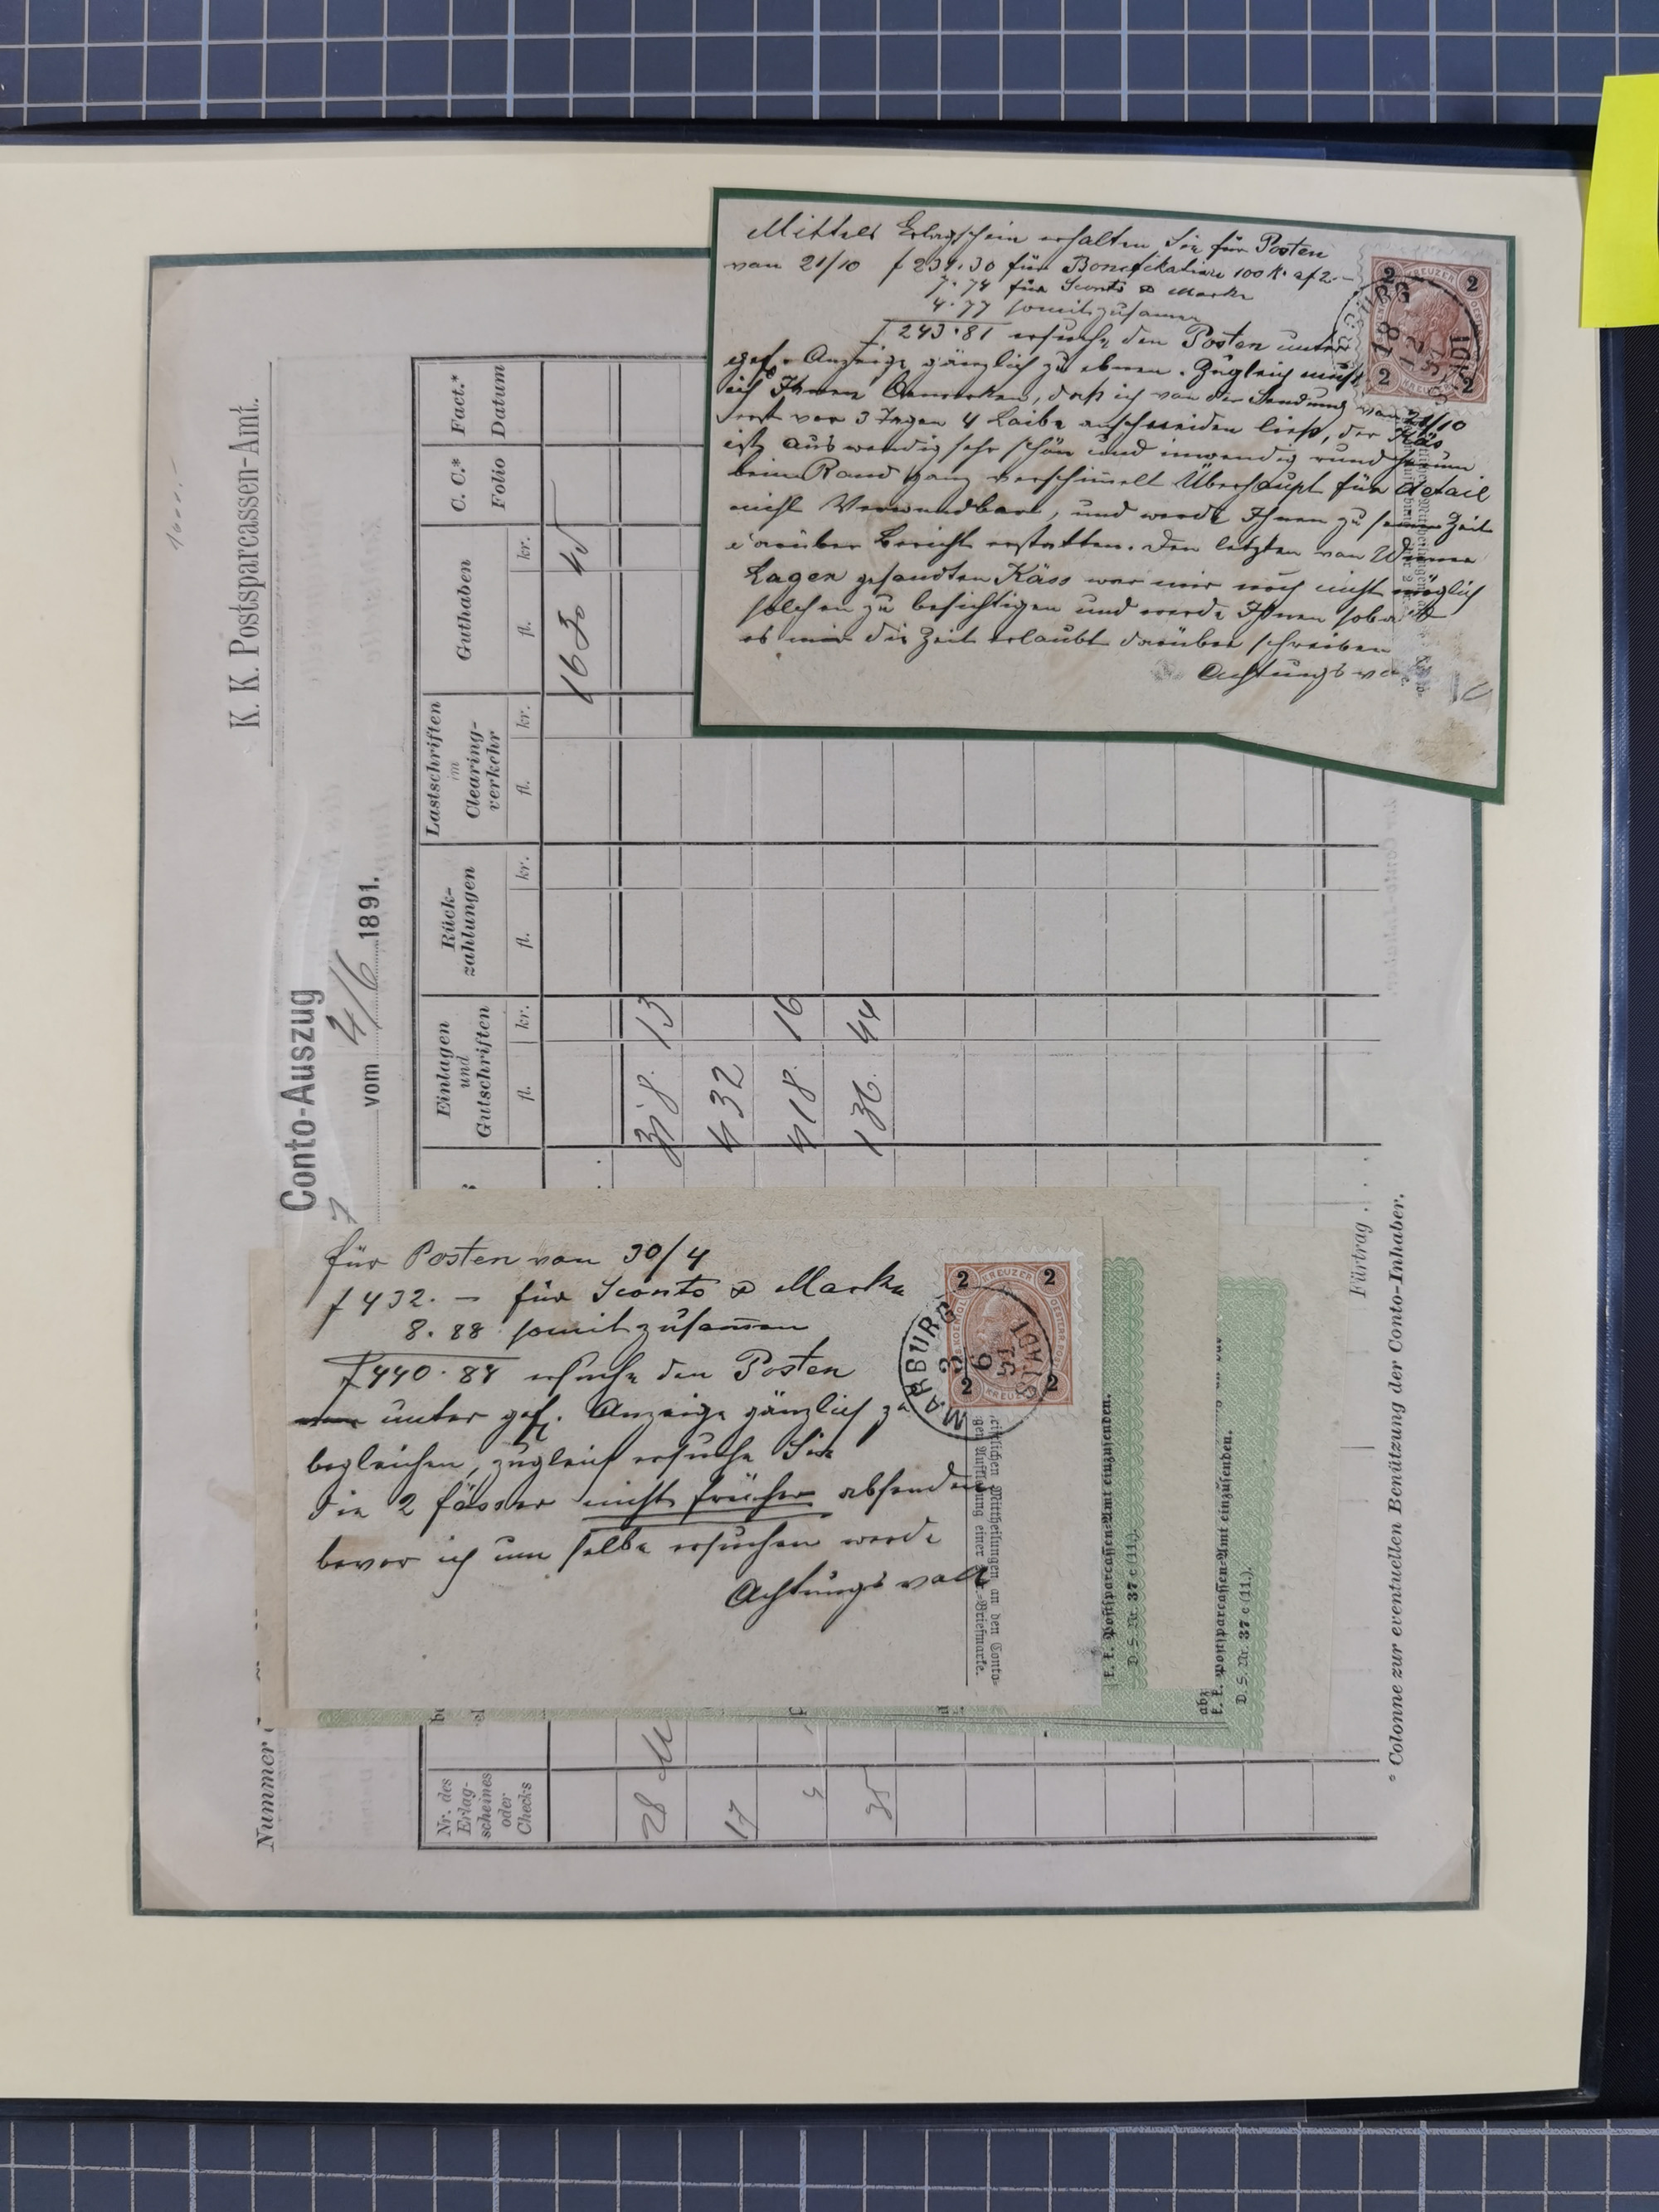 Mittels Erlagschein erhalten Sie für Posten
von 21/10 f 239.30 für Bonifikation 100 K. af 2.—
7.74 für Sconto & Marke
4.77 somit zusamen
f 243.81 ersuche den Posten unter
gef. Anzeige gänzlich zu ebnen. Zugleich muß
ich Ihnen Bemerken, daß ich von der Sendung von 21/10
erst vor 3 Tagen 4 Laibe aufschneiden ließ, der Käs
ist auswendig sehr schön und inwendig rund herum
beim Rand ganz verschimelt Überhaupt für detail
nicht Verwendbar, und werde Ihnen zu seiner Zeit
darüber Bericht erstatten. Den letzten von
Lagen gesandten Käse war mir noch nicht möglich
solchen zu besichtigen und werde Ihnen sobald
es mir die Zeit erlaubt darüber schreiben
Achtungsvoll
2 KREUZER 2
2 KREUZER 2
18
12
91
STADT
K. K. Postsparcassen-Amt.
Conto-Auszug
vom 4/6 1891.
Nummer
Nr. des
Erlag-
scheines
oder
Checks
Einlagen
und
Gutschriften
fl. kr.
Rück-
zahlungen
fl. kr.
Lastschriften
im
Clearing-
verkehr
fl. kr.
Guthaben
fl. kr.
C. C.*
Folio
Fact.*
Datum
1630 45
28 318. 13
17 432
4 418. 16
35 136. 44
Fürtrag . . .
* Colonne zur eventuellen Benützung der Conto-Inhaber.
für Posten von 30/4
f 432. — für Sconto & Marke
8.88 somit zusamen
f 440.88 ersuche den Posten
unter gef. Anzeige gänzlich zu
begleichen, zugleich ersuche Sie
die 2 fässer nicht früher absenden
bevor ich um selbe ersuchen werde
Achtungsvoll
2 KREUZER 2
2 KREUZER 2
MARBURG STADT
3
6
91
Mittheilungen an den Conto-
einer 2 kr.-Briefmarke.
k. k. Postsparcassen-Amt einzusenden.
D. S. Nr. 37 c (11.).
k. k. Postsparcassen-Amt einzusenden.
D. S. Nr. 37 c (11.).